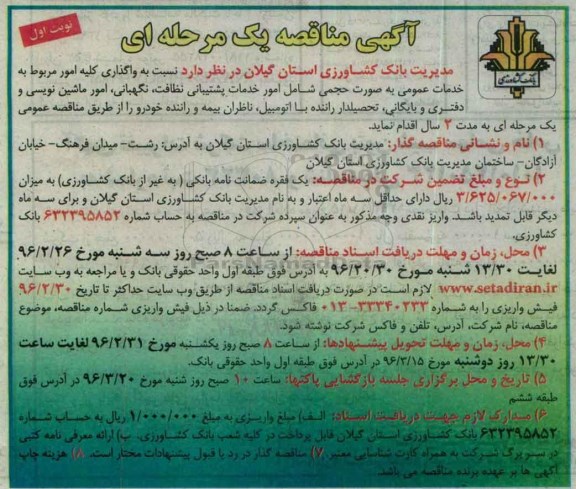 نوبت اول
آگهی مناقصه یک مرحله ای
بانک کشاورزی
مدیریت بانک کشاورزی استان گیلان در نظر دارد نسبت به واگذاری کلیه امور مربوط به
خدمات عمومی به صورت حجمی شامل امور خدمات پشتیبانی نظافت، نگهبانی، امور ماشین نویسی و
دفتری و بایگانی، تحصیلدار راننده با اتومبیل، ناظران بیمه و راننده خودرو را از طریق مناقصه عمومی
یک مرحله ای به مدت ۲ سال اقدام نماید.
۱) نام و نشانی مناقصه گذار: مدیریت بانک کشاورزی استان گیلان به آدرس: رشت- میدان فرهنگ- خیابان
آزادگان- ساختمان مدیریت بانک کشاورزی استان گیلان
۲) نوع و مبلغ تضمین شرکت در مناقصه: یک فقره ضمانت نامه بانکی ( به غیر از بانک کشاورزی) به میزان
۳/۶۲۵/۰۶۷/۰۰۰ ریال دارای حداقل سه ماه اعتبار و به نام مدیریت بانک کشاورزی استان گیلان و برای سه ماه
دیگر قابل تمدید باشد. واریز نقدی وجه مذکور به عنوان سپرده شرکت در مناقصه به حساب شماره ۶۳۲۳۹۵۸۵۲ بانک
کشاورزی.
۳) محل، زمان و مهلت دریافت اسناد مناقصه: از ساعت ۸ صبح روز سه شنبه مورخ ۹۶/۲/۲۶
لغایت ۱۳/۳۰ شنبه مورخ ۹۶/۲۰/۳۰ به آدرس فوق طبقه اول واحد حقوقی بانک و یا مراجعه به وب سایت
www.setadiran.ir لازم است در صورت دریافت اسناد مناقصه از طریق وب سایت حداکثر تا تاریخ ۹۶/۲/۳۰
فیش واریزی را به شماره ۳۳۳۴۰۲۳۳-۰۱۳ فاکس گردد. ضمنا در ذیل فیش واریزی شماره مناقصه، موضوع
مناقصه، نام شرکت، آدرس، تلفن و فاکس شرکت نوشته شود.
۴) محل، زمان و مهلت تحویل پیشنهادها: از ساعت ۸ صبح روز یکشنبه مورخ ۹۶/۲/۳۱ لغایت ساعت
۱۳/۳۰ روز دوشنبه مورخ ۹۶/۳/۱۵ در آدرس فوق طبقه اول واحد حقوقی بانک.
۵) تاریخ و محل برگزاری جلسه بازگشایی پاکتها: ساعت ۱۰ صبح روز شنبه مورخ ۹۶/۳/۲۰ در آدرس فوق
طبقه ششم
۶) مدارک لازم جهت دریافت اسناد: الف) مبلغ واریزی به مبلغ ۱/۰۰۰/۰۰۰ ریال به حساب شماره
۶۳۲۳۹۵۸۵۲ بانک کشاورزی استان گیلان قابل پرداخت در کلیه شعب بانک کشاورزی. ب) ارائه معرفی نامه کتبی
در سربرگ شرکت به همراه کارت شناسایی معتبر. ۷) مناقصه گذار در رد یا قبول پیشنهادات مختار است. ۸) هزینه چاپ
آگهی ها بر عهده برنده مناقصه می باشد.